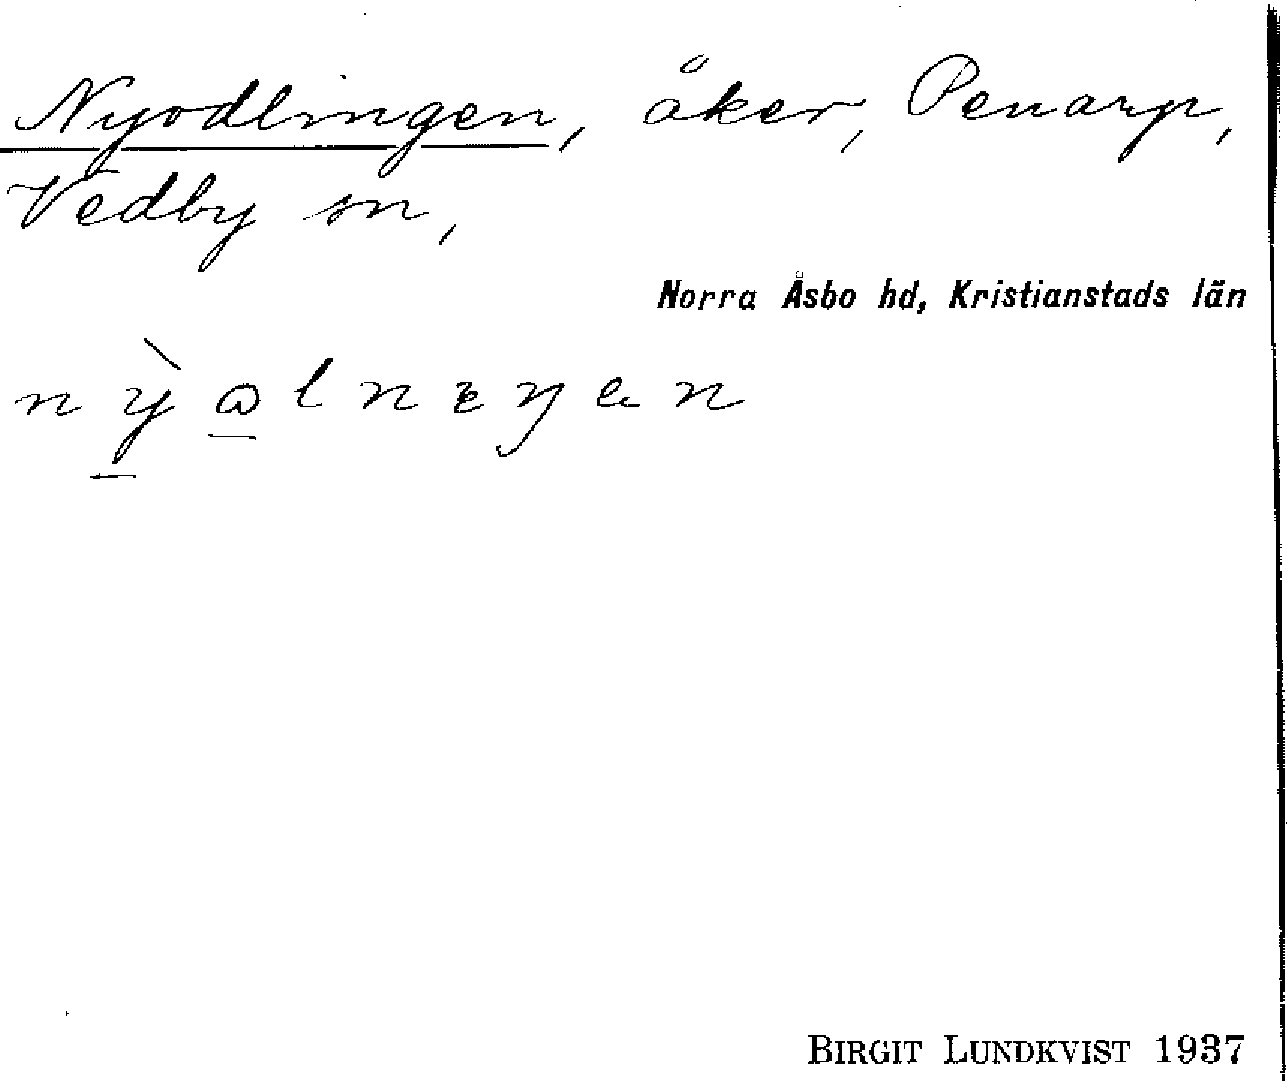 Nyodlingen, åker, Penarp,
Vedby sn,
Norra Åsbo hd, Kristianstads län
BIRGIT LUNDKVIST 1937